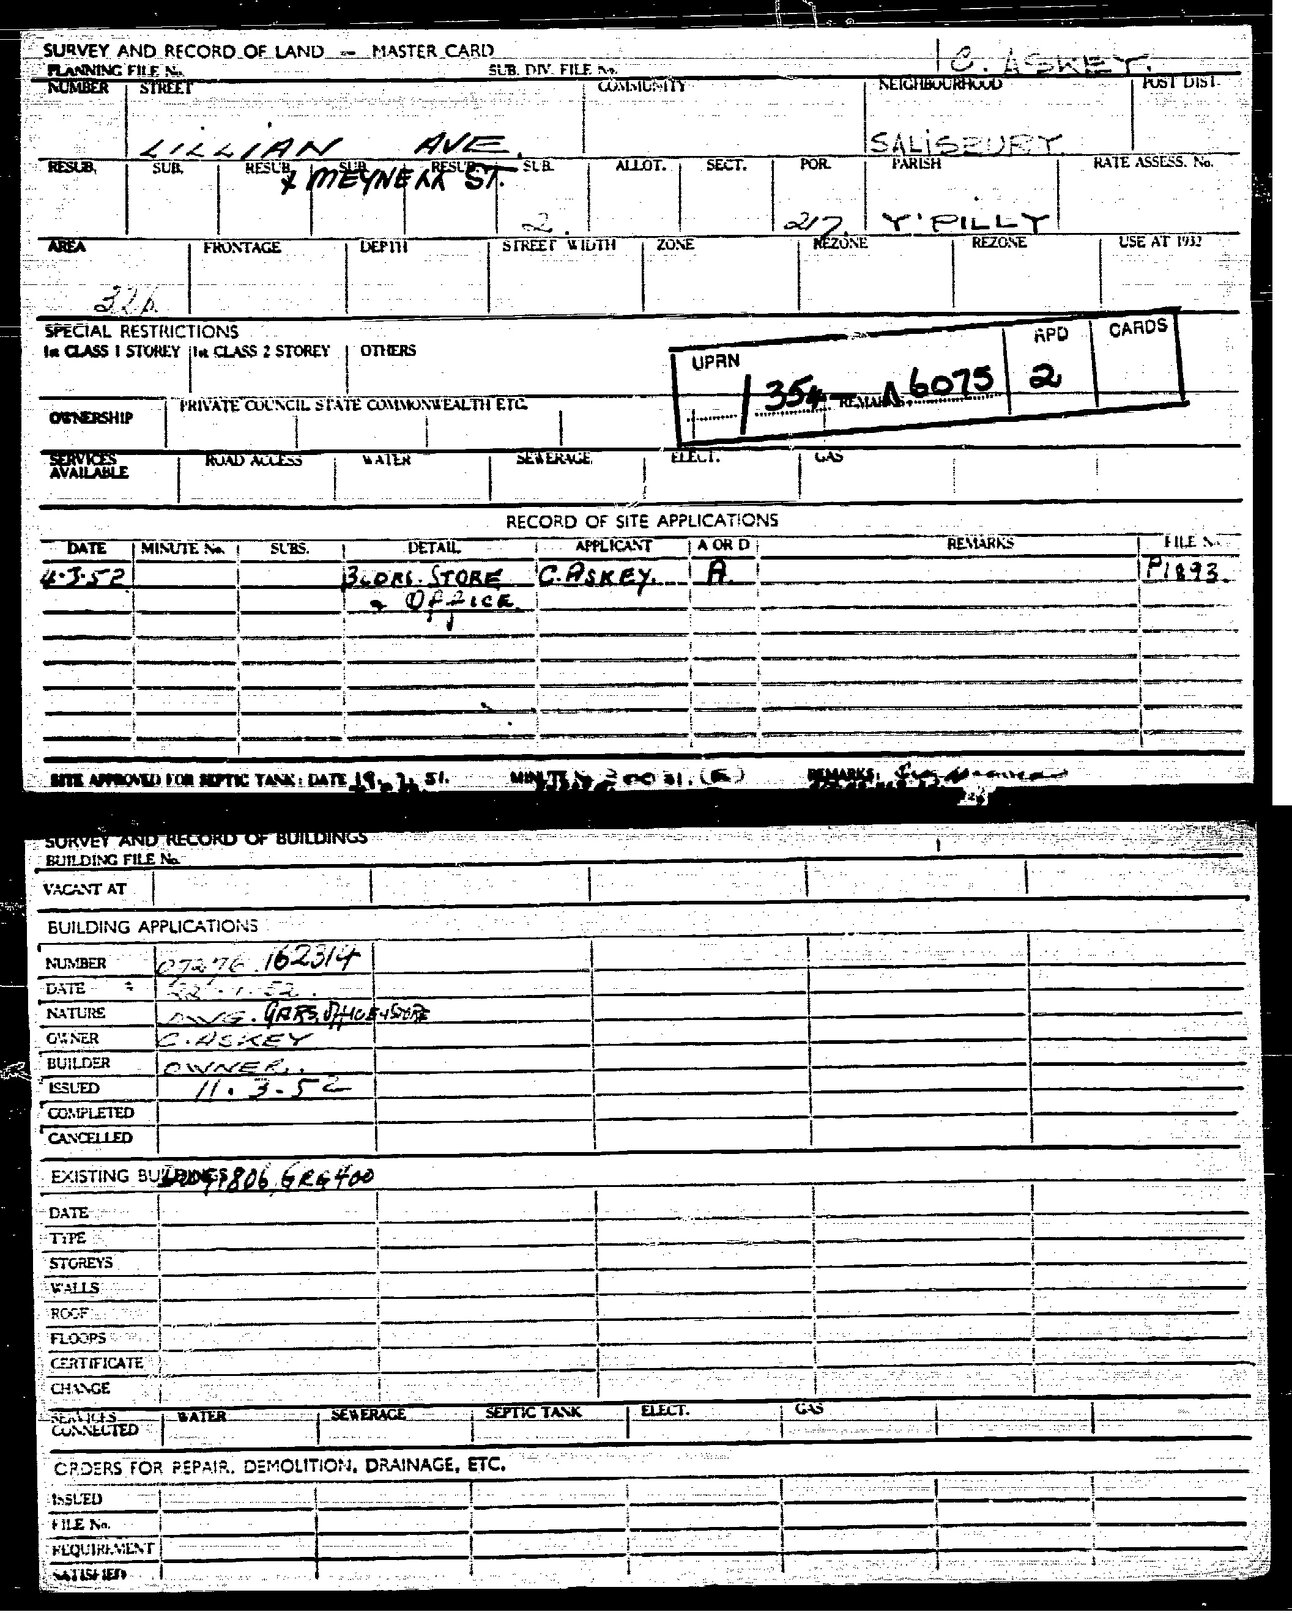 SURVEY AND RECORD OF LAND — MASTER CARD
C. ASKEY.
PLANNING FILE No. SUB. DIV. FILE No.
NUMBER STREET COMMUNITY NEIGHBOURHOOD POST DIST.
LILLIAN AVE. SALISBURY
RESUB. SUB. RESUB. SUB. RESUB. SUB. ALLOT. SECT. POR. PARISH RATE ASSESS. No.
& MEYNELL ST.
2. 217. Y'PILLY
AREA FRONTAGE DEPTH STREET WIDTH ZONE REZONE REZONE USE AT 1932
32p.
SPECIAL RESTRICTIONS
1st CLASS 1 STOREY 1st CLASS 2 STOREY OTHERS
UPRN RPD CARDS
354 6075 2
OWNERSHIP PRIVATE COUNCIL STATE COMMONWEALTH ETC. REMARKS
SERVICES AVAILABLE ROAD ACCESS WATER SEWERAGE ELECT. GAS
RECORD OF SITE APPLICATIONS
DATE MINUTE No. SUBS. DETAIL APPLICANT A OR D REMARKS FILE No.
4.3.52 STORE C. ASKEY. A. P1893.
& OFFICE
SITE APPROVED FOR SEPTIC TANK: DATE 19. 51. MINUTE No. REMARKS:
SURVEY AND RECORD OF BUILDINGS
BUILDING FILE No.
VACANT AT
BUILDING APPLICATIONS
NUMBER 07276 162314
DATE 22.1.52.
NATURE DWG. GARS. OFFICE & STORE
OWNER C. ASKEY
BUILDER OWNER.
ISSUED 11.3.52
COMPLETED
CANCELLED
EXISTING BUILDINGS GRG400
DATE
TYPE
STOREYS
WALLS
ROOF
FLOORS
CERTIFICATE
CHANGE
SERVICES CONNECTED WATER SEWERAGE SEPTIC TANK ELECT. GAS
ORDERS FOR REPAIR, DEMOLITION, DRAINAGE, ETC.
ISSUED
FILE No.
REQUIREMENT
SATISFIED